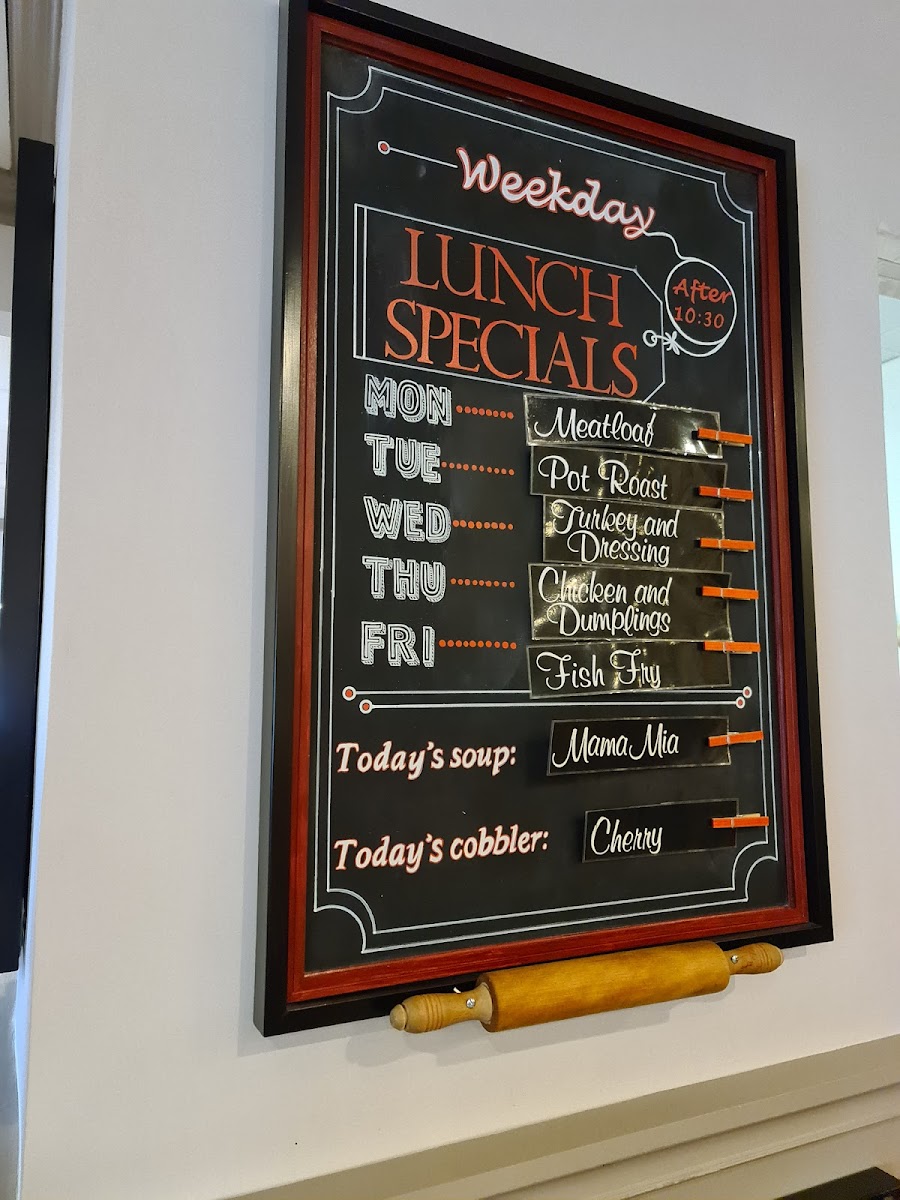 Weekday
LUNCH
SPECIALS
After
10:30
MON Meatloaf
TUE Pot Roast
WED Turkey and
Dressing
THU Chicken and
Dumplings
FRI Fish Fry
Today's soup: Mama Mia
Today's cobbler: Cherry